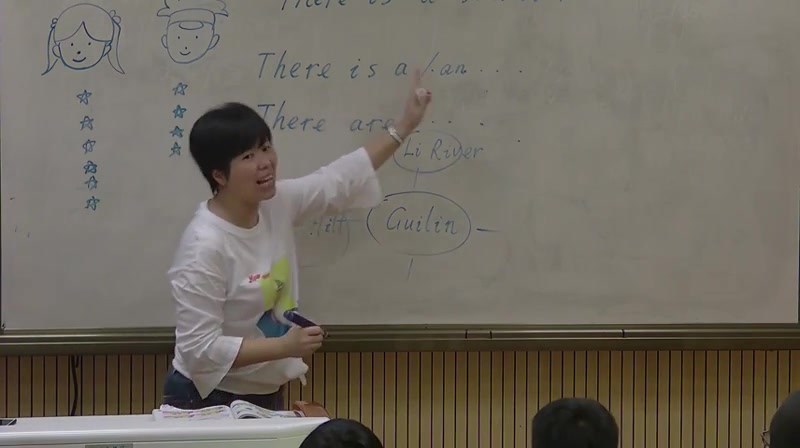 There is a
There is a / an ....
There are ....
Li River
Hill
Guilin